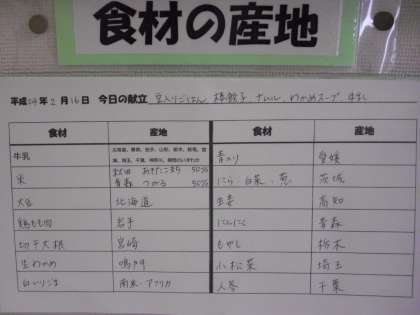 食材の産地
平成24年2月16日 今日の献立 豆入りごはん 棒餃子 ナムル わかめスープ 牛乳
食材 産地 食材 産地
牛乳 青のり 愛媛
米 秋田 あきたこまち 50% 青森 つがる 50% にら・白菜・葱 茨城
大豆 北海道 生姜 高知
鶏もも肉 岩手 にんにく 青森
切干大根 宮崎 もやし 栃木
生わかめ 鳴門 小松菜 埼玉
白いりごま 南米・アフリカ 人参 千葉